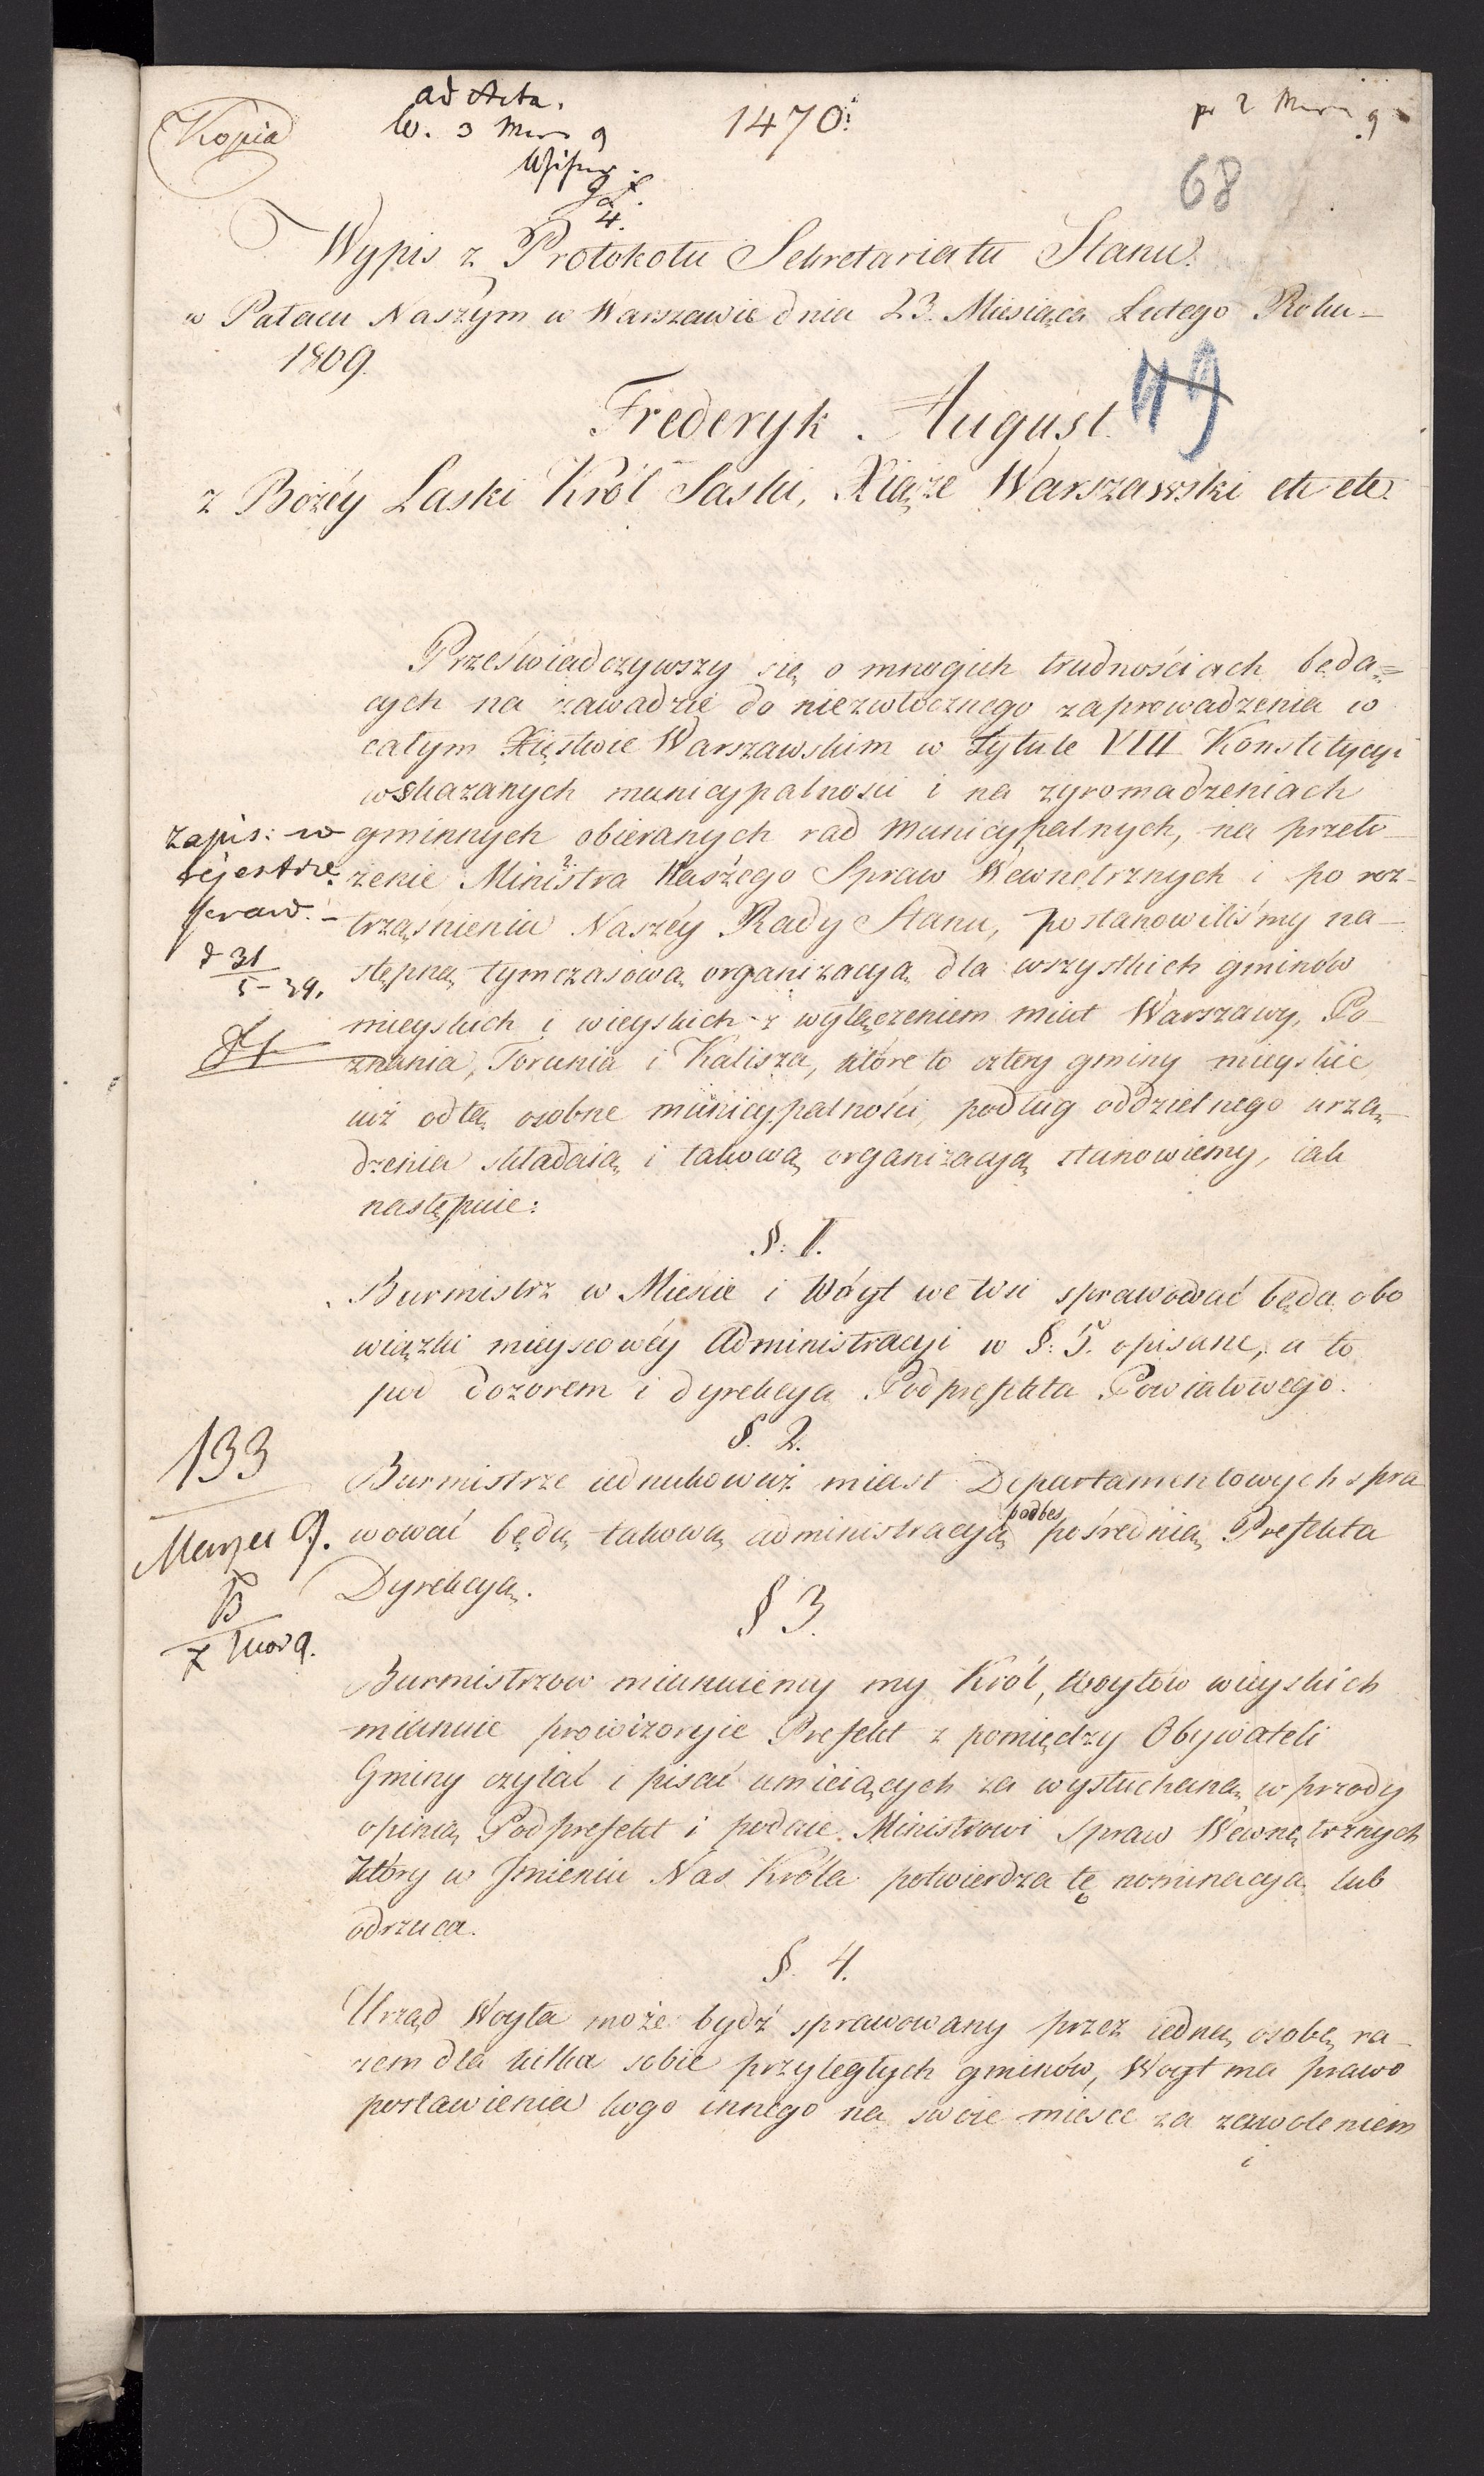 Kopia
ad Acta.
1470:
68
Wypis z Protokołu Sekretariatu Stanu.
w Pałacu Naszym w Warszawie dnia 23. Miesiąca Lutego Roku
1809.
Frederyk August.
49
z Bożéy Łaski Król Saski, Xiąże Warszawski etc etc.
Przeświadczywszy się o mnogich trudnościach będą=
cych na zawadzie do niezwłocznego zaprowadzenia w
całym Xięstwie Warszawskim w Tytule VIII Konstytycyi
wskazanych municypalnosci i na zgromadzeniach
gminnych obieranych rad municypalnych, na przeło-
żenie Ministra Naszego Spraw Wewnętrznych i po roz-
trząśnieniu Naszéy Rady Stanu, postanowiliśmy na-
stępną tymczasową organizacyą dla wszystkich gminów
mieyskich i wieyskich z wyłączeniem miast Warszawy, Po-
znania, Torunia i Kalisza, które to cztery gminy mieyskie
iuż odtą osobne municypalności, podług oddzielnego urzą-
dzenia składaią i takową organizacyą stanowiemy, iak
następuie:
zapis: w
rejestrze
31
5 - 39.
§. 1.
Burmistrz w Mieście i Wóyt we wsi sprawować będą obo
wiązki mieyscowéy Administracyi w §: 5. opisane, a to
pod dozorem i dyrekcyą Podprefekta Powiatowego.
§. 2.
Burmistrze iednakowuż miast Departamentowych spra
wować będą takową administracyą podbes pośrednią Prefekta
Dyrekcyą.
133
Marca 9.
§ 3.
Burmistrzow mianuiemy my Król, Woytów wieyskich
mianuie prowizoryie Prefekt z pomiędzy Obywateli
Gminy czytać i pisać umieiących za wysłuchaną w przody
opinią Podprefekt i podaie Ministrowi Spraw Wewnętrznych
który w Jmieniu Nas Króla potwierdza tę nominacyą lub
odrzuca.
§. 4.
Urząd Woyta może bydź sprawowany przez iedną osobę ra-
zem dla kilka sobie przyległych gminów, Woyt ma prawo
postawienia kogo innego na swoie miesce za zezwoleniem
i